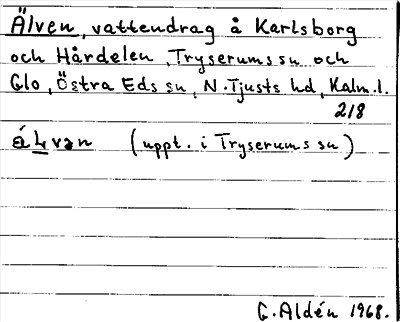 Älven, vattendrag å Karlsborg
och Hårdelen, Tryserums sn och
Glo, Östra Eds sn, N. Tjusts hd, Kalm. l.
218
áLvan (uppt. i Tryserums sn)
G. Aldén 1968.